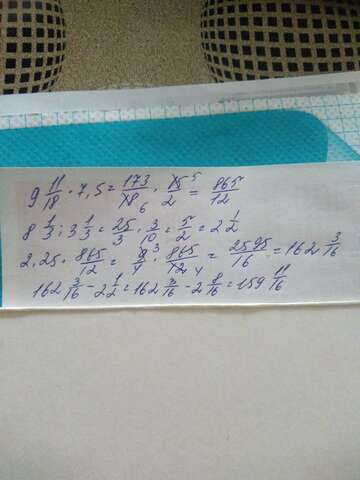 9 11/18 · 7,5 = 173/18 6 · 15 5/2 = 865/12
8 1/3 : 3 1/3 = 25/3 · 3/10 = 5/2 = 2 1/2
2,25 · 865/12 = 9 3/4 · 865/12 4 = 2595/16 = 162 3/16
162 3/16 - 2 1/2 = 162 3/16 - 2 8/16 = 159 11/16